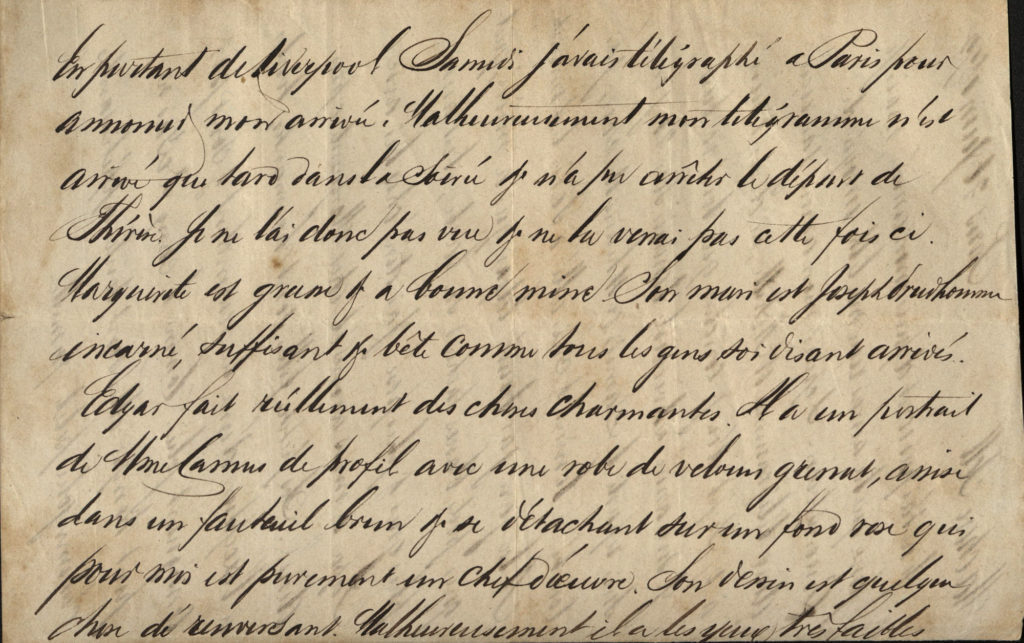 En partant de Liverpool Samedi j'avais télégraphé a Paris pour
annoncer mon arrivée. Malheureusement mon télégramme n'est
arrivé que tard dans la soirée & n'a pu arrêter le départ de
Thérèse. Je ne l'ai donc pas vue & ne la verrai pas cette fois ci.
Marguerite est grasse & a bonne mine. Son mari est Joseph Prudhomme
incarné, suffisant & bête comme tous les gens soi disant arrivés.
Edgar fait réellement des choses charmantes. Il a un portrait
de Mme Camus de profil avec une robe de velours grenat, assise
dans un fauteuil brun & se détachant sur un fond rose qui
pour moi est purement un chef d'œuvre. Son dessin est quelque
chose de renversant. Malheureusement il a les yeux très faibles